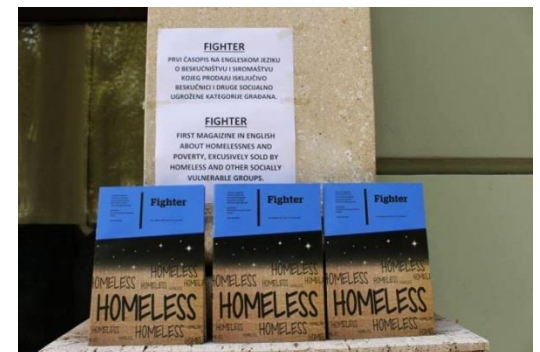 FIGHTER
PRVI ČASOPIS NA ENGLESKOM JEZIKU
O BESKUĆNIŠTVU I SIROMAŠTVU
KOJEG PRODAJU ISKLJUČIVO
BESKUĆNICI I DRUGE SOCIJALNO
UGROŽENE KATEGORIJE GRAĐANA.
FIGHTER
FIRST MAGAIZINE IN ENGLISH
ABOUT HOMELESSNES AND
POVERTY, EXCUSIVELY SOLD BY
HOMELESS AND OTHER SOCIALLY
VULNERABLE GROUPS.
Fighter
HOMELESS
HOMELESS
HOMELESS
HOMELESS
Fighter
HOMELESS
HOMELESS
HOMELESS
HOMELESS
Fighter
HOMELESS
HOMELESS
HOMELESS
HOMELESS